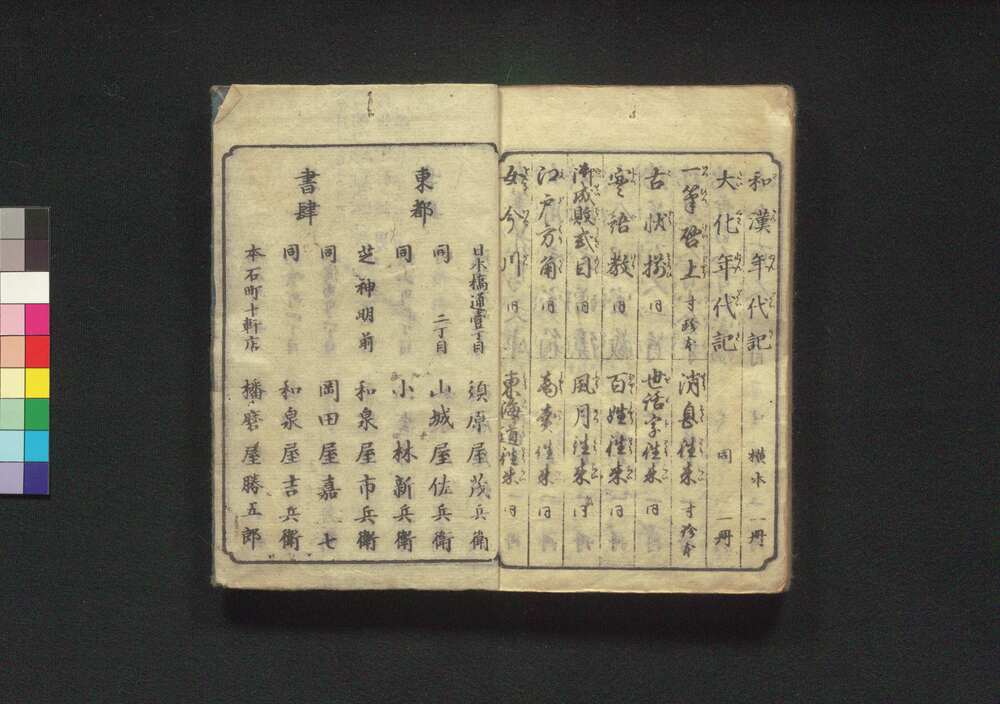 和漢年代記 横本 一冊
大化年代記 同 一冊
一筆啓上 寸珍本 消息往来 寸珍本
古状揃 同 世話字往来 同
実語教 同 百姓往来 同
御成敗式目 同 風月往来 同
江戸方角 同 商売往来 同
女今川 同 東海道往来 同
東都
書肆
日本橋通壹丁目 須原屋茂兵衛
同 二丁目 山城屋佐兵衛
同 小林新兵衛
芝神明前 和泉屋市兵衛
同 岡田屋嘉七
同 和泉屋吉兵衛
本石町十軒店 播磨屋勝五郎